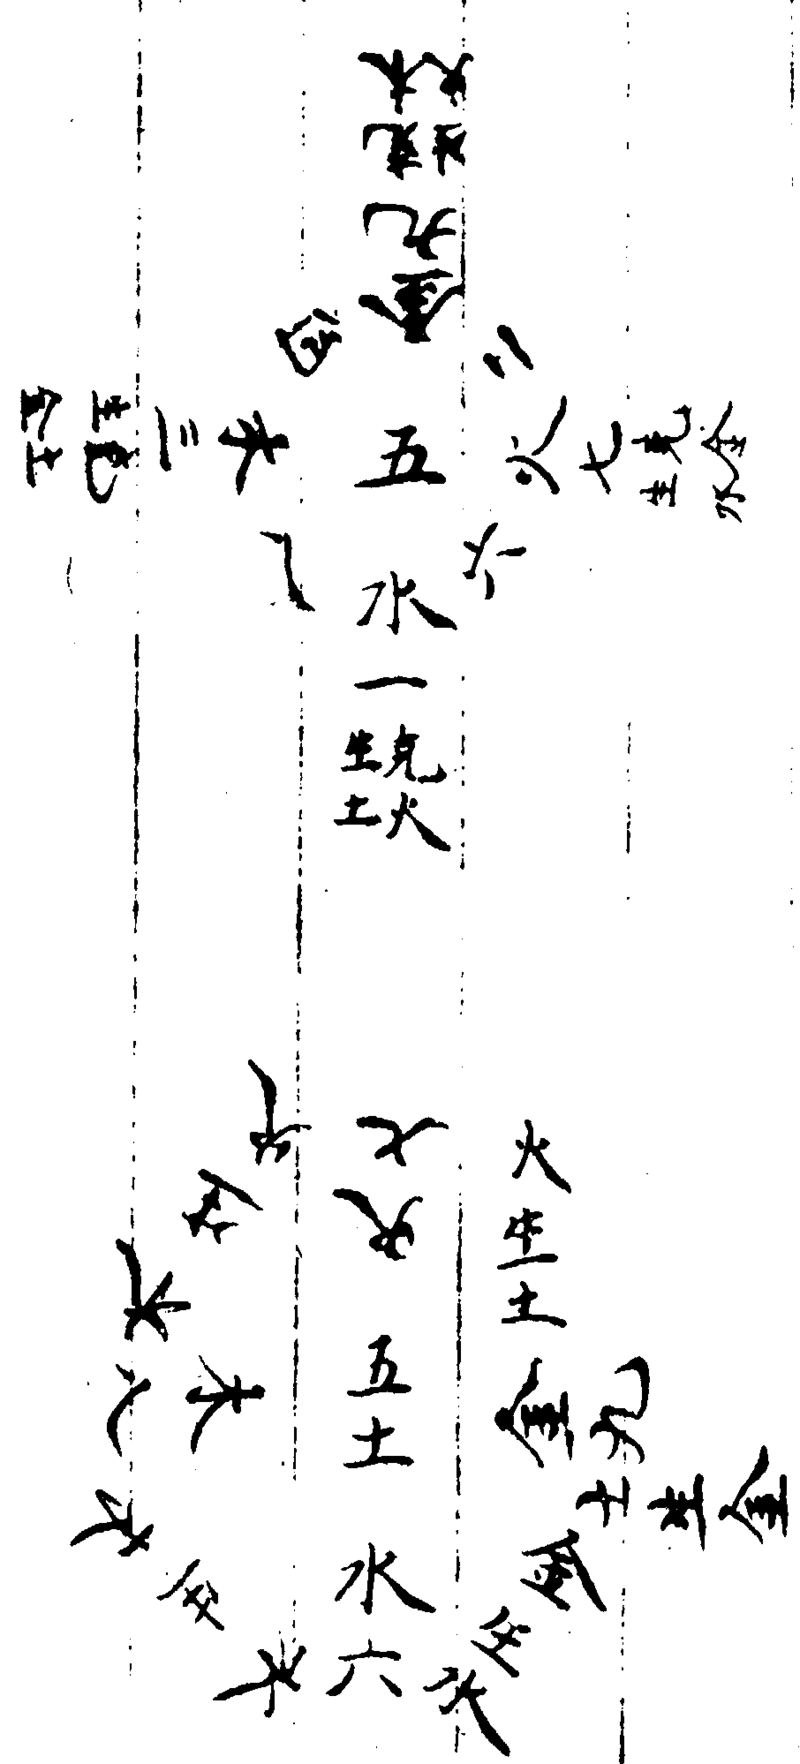 木
克
九
金
四
二
三
木
五
火
七
克
金
生
六
水
一
生克
土火
七
火
木生火
火生土
八
木
五
土
金
九
土生金
水生木
水
六
金生水